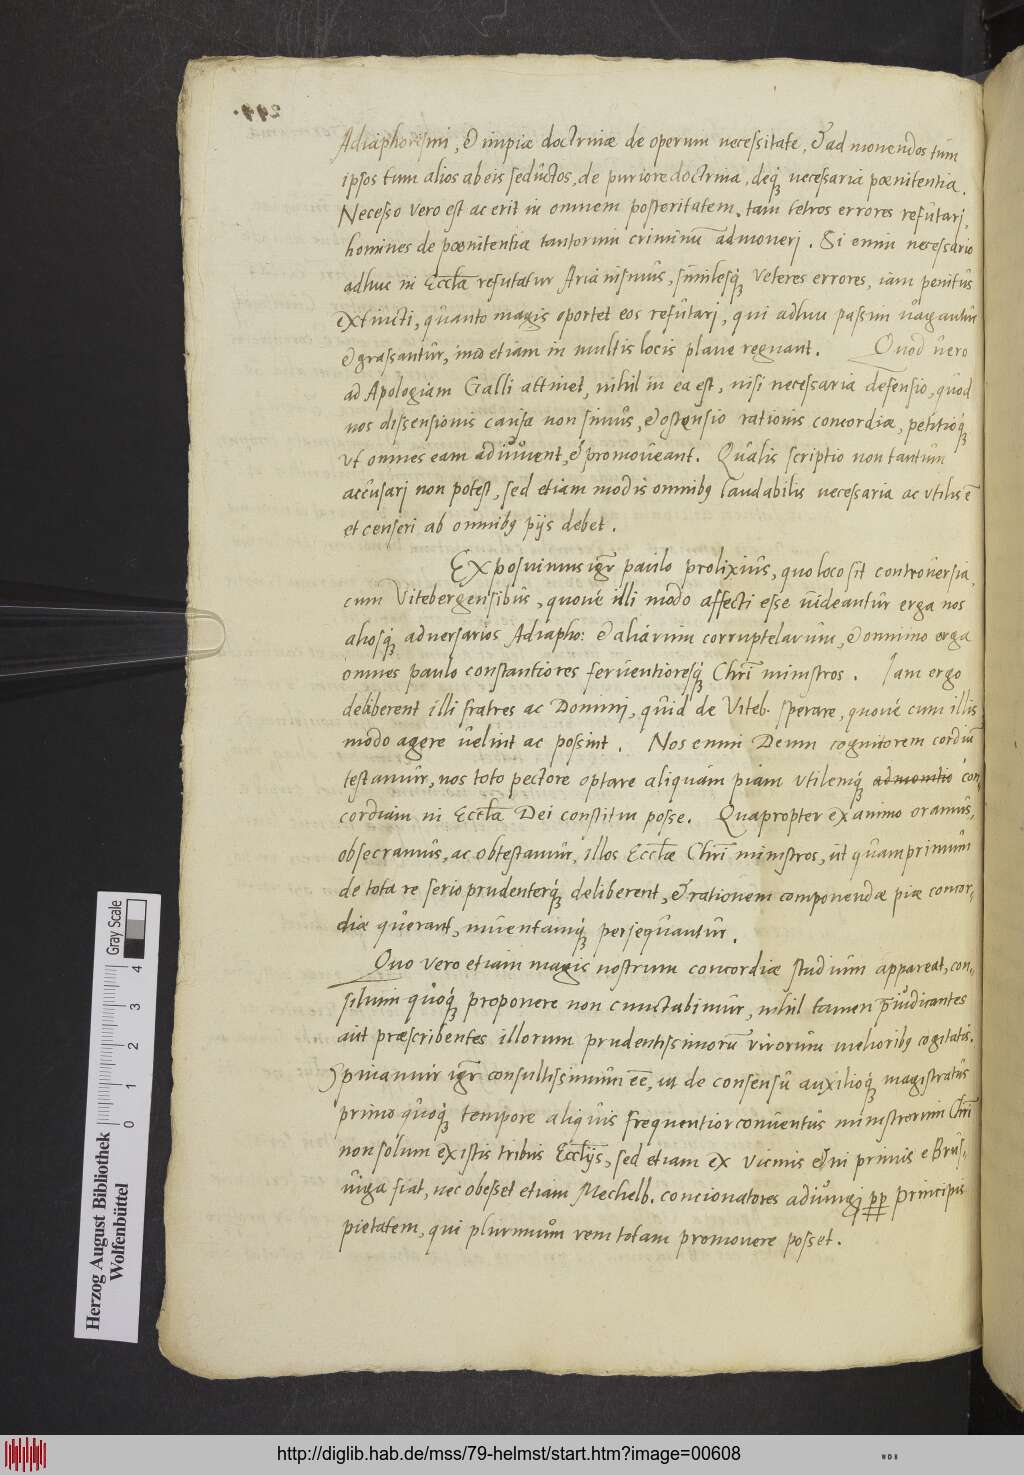 Adiaphorismi, & impiæ doctrinæ de operum necessitate, & ad monendos tùm
ipsos tum alios ab eis sedùctos, de puriore doctrina, deq́; necessaria pœnitentia.
Necesse vero est ac erit in omnem posteritatem, tam tetros errores refùtarj,
homines de pœnitentia tantorum criminū admonerj. Si enim necessario
adhuc in Eccl̄a refutatur Arianismùs, similesq́; veteres errores, iam penitùs
extincti, qùanto magis oportet eos refùtarj, qui adhuc passim vagantùr
& grassantùr, imò etiam in multis locis plane regnant. Qùod vero
ad Apologiam Galli attinet, nihil in ea est, nisi necessaria defensio, qùod
nos dissensionis caùsa non simùs, & ostensio rationis concordiæ, petitioq́;
vt omnes eam adiùvent, & promoveant. Qùalis scriptio non tantùm
accùsarj non potest, sed etiam modis omnibꝯ laudabilis necessaria ac vtilis ē
et censeri ab omnibꝯ pijs debet.
Exposuimus igr̄ paulo prolixiùs, quo loco sit controversia
cum Vitebergensibùs, quové illi modo affecti esse videantùr erga nos
aliosq́; adversarios Adiapho: & aliarùm corruptelarùm, & omnino erga
omnes paulo constantiores ferventioresq́; Chrī ministros. Iam ergo
deliberent illi fratres ac Dominj, qùid de Viteb. sperare, quové cum illis
modo agere velint ac possint. Nos enim Deum cognitorem cordiū
testamùr, nos toto pectore optare aliquam piam vtilemq́; admonitio con,
cordiam in Eccl̄a Dei constitui posse. Quapropter ex animo oramùs,
obsecramùs, ac obtestamùr, illos Eccl̄æ Chrī ministros, ùt qùamprimùm
de tota re serio prudenterq́; deliberent, & rationem componendæ piæ concor,
diæ qùerant, inventamq́; perseqùantùr.
Quo vero etiam magis nostrum concordiæ stùdiùm appareat, con,
siliùm qùoq́; proponere non cunctabimùr, nihil tamen p̄iùdicantes
aùt præscribentes illorum prudentissimorū virorùm melioribꝯ cogitatis.
Opinamur igr̄ consultissimùm eē, ut de consensù auxilioq́; magistratùs
primo qùoq́; tempore aliqùis freqùentior conventùs ministrorùm Chrī
non solùm ex istis tribus Eccl̄ijs, sed etiam ex vicinis et in primis e Brùs,
viga fiat, nec obesset etiam Mechelb. concionatores adiùngj pp principis
pietatem, qui plurimùm rem totam promovere posset.
Gray Scale
0 1 2 3 4
Herzog August Bibliothek
Wolfenbüttel
http://diglib.hab.de/mss/79-helmst/start.htm?image=00608